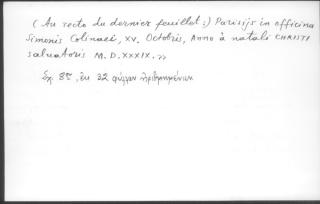 (Au recto du dernier feuillet :) Parisijs in officina
Simonis Colinaei, XV. Octobris, Anno à natali CHRISTI
salvatoris M. D. XXXIX. »
Σχ. 8ον, ἐκ 32 φύλλων ἠριθμημένων